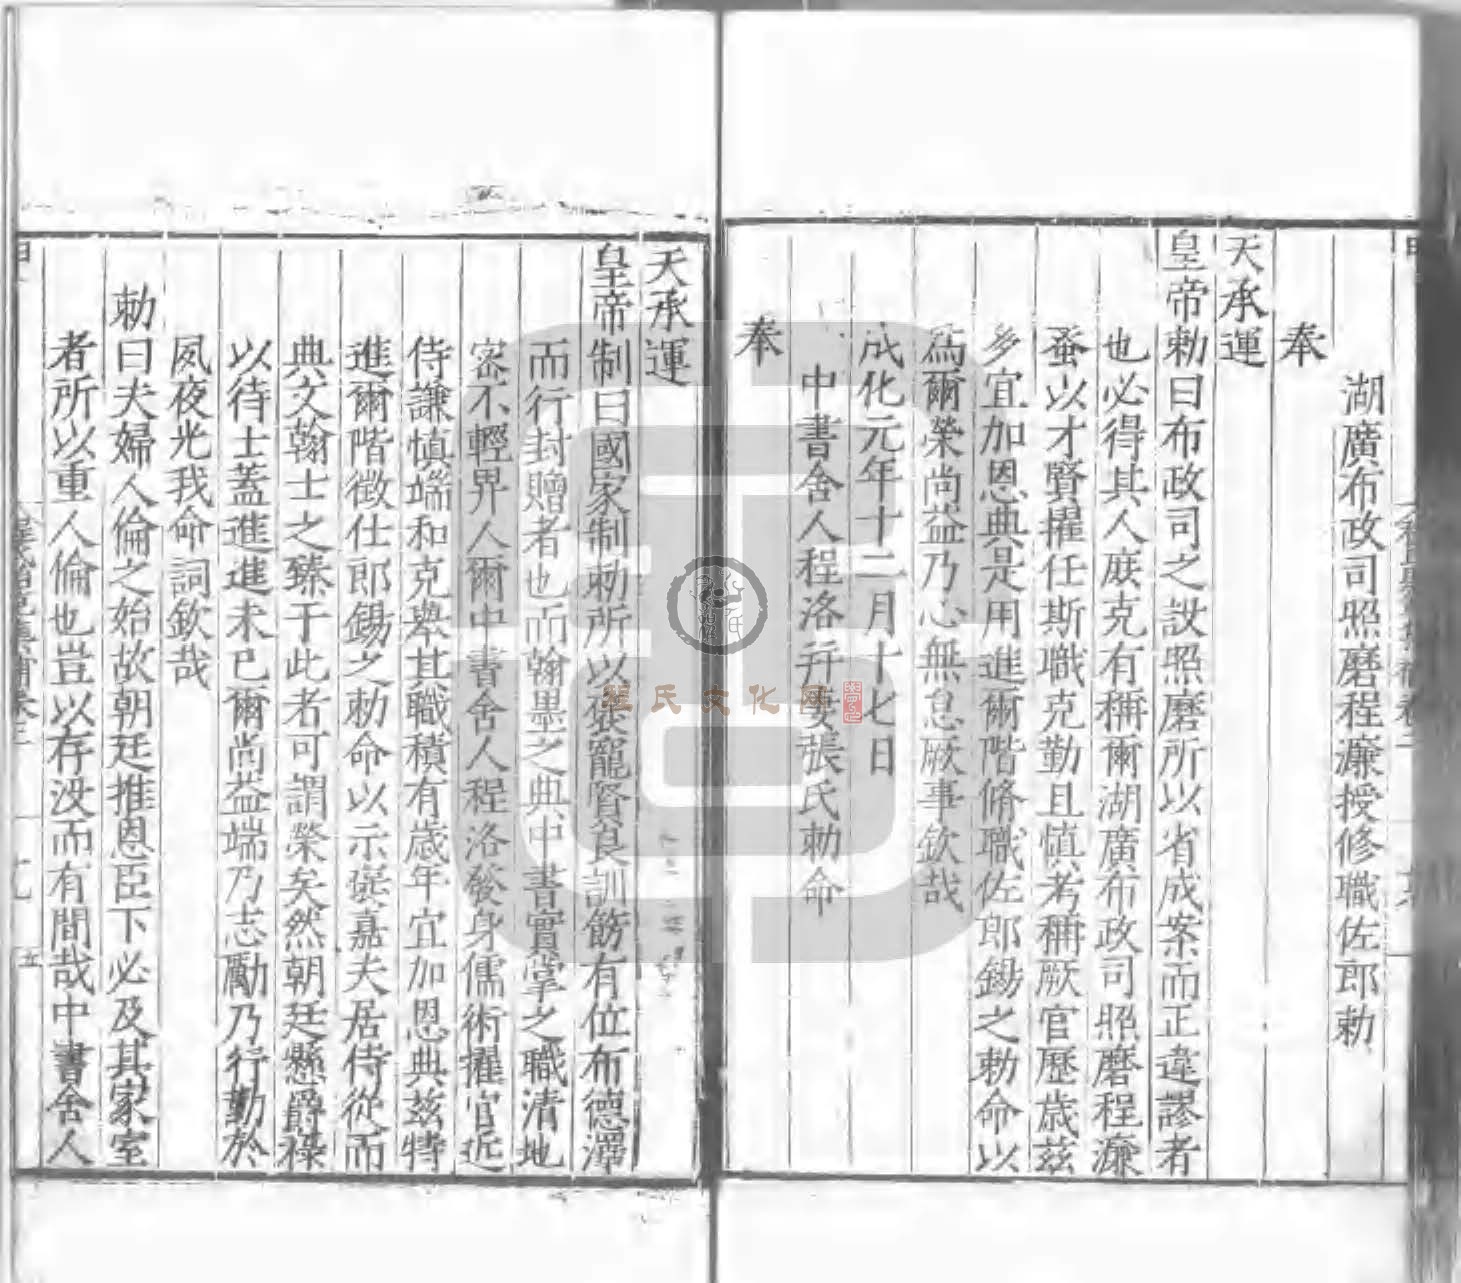 湖廣布政司照磨程濂授修職佐郎勅
奉
天承運
皇帝勅曰布政司之設照磨所以省成案而正違謬者
也必得其人庶克有稱爾湖廣布政司照磨程濂
蚤以才賢擢任斯職克勤且慎考稱厥官歷歲茲
多宜加恩典是用進爾階脩職佐郎錫之勅命以
為爾榮尚益乃心無怠厥事欽哉
成化元年十二月十七日
中書舍人程洛并妻張氏勅命
奉
天承運
皇帝制曰國家制勅所以褒寵賢良訓飭有位布德澤
而行封贈者也而翰墨之典中書實掌之職清地
密不輕畀人爾中書舍人程洛發身儒術擢官近
侍謙慎端和克舉其職積有歲年宜加恩典茲特
進爾階徵仕郎錫之勅命以示褒嘉夫居侍從而
典文翰士之臻于此者可謂榮矣然朝廷懸爵祿
以待士蓋進進未已爾尚益端乃志勵乃行勤於
夙夜光我命詞欽哉
勅曰夫婦人倫之始故朝廷推恩臣下必及其家室
者所以重人倫也豈以存没而有間哉中書舍人
程氏文化网